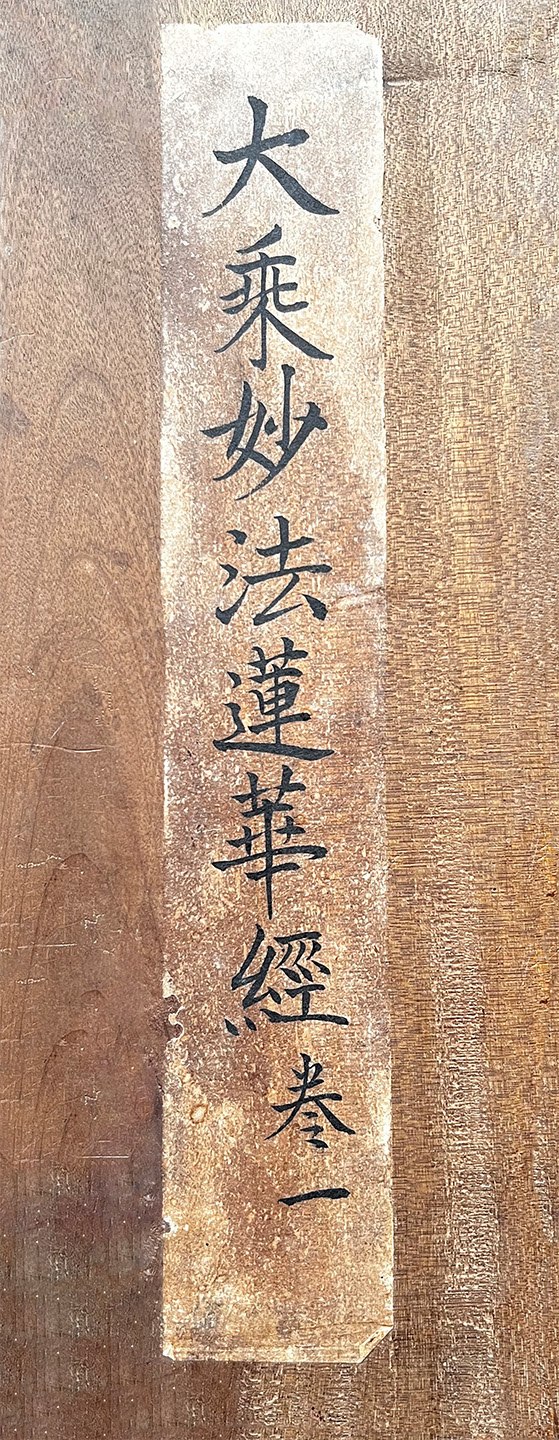 大乘妙法蓮華經卷一